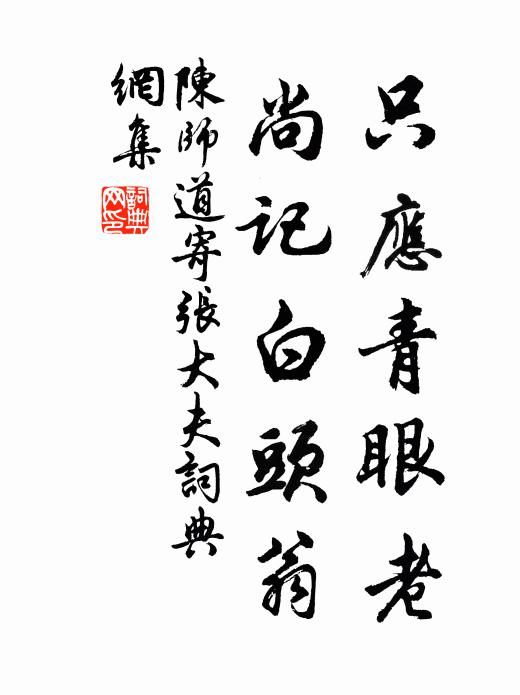 只應青眼老
尚記白頭翁
陳師道寄張大夫詞典
網集
詞典
网印